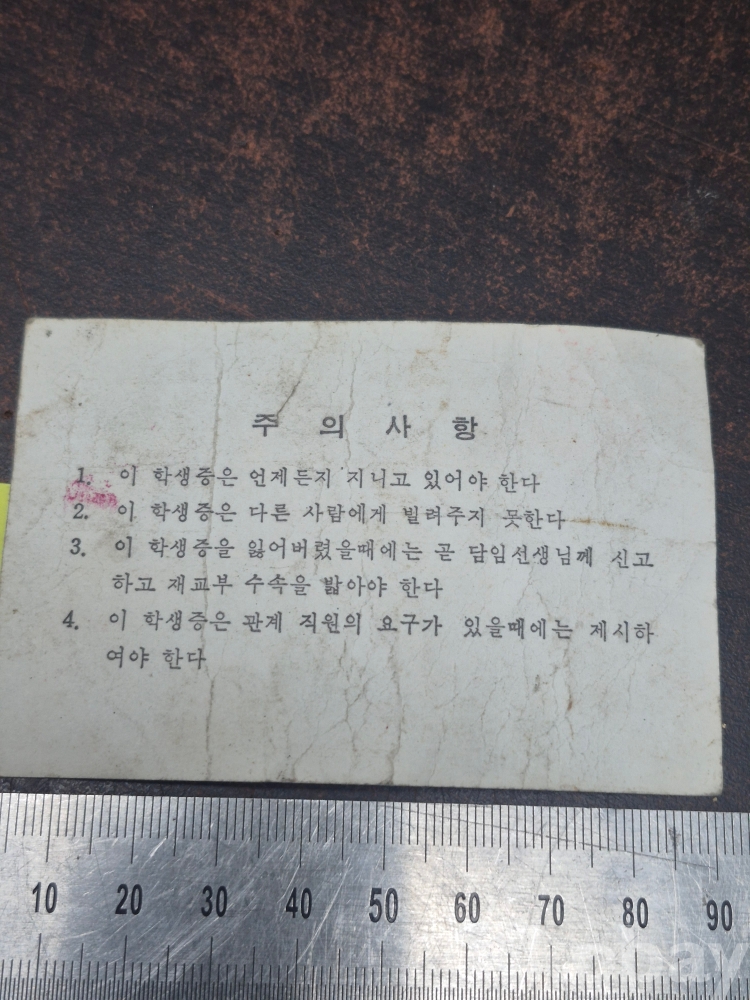 주 의 사 항
1. 이 학생증은 언제든지 지니고 있어야 한다
2. 이 학생증은 다른 사람에게 빌려주지 못한다
3. 이 학생증을 잃어버렸을때에는 곧 담임선생님께 신고
하고 재교부 수속을 밟아야 한다
4. 이 학생증은 관계 직원의 요구가 있을때에는 제시하
여야 한다
10 20 30 40 50 60 70 80 90
ebay